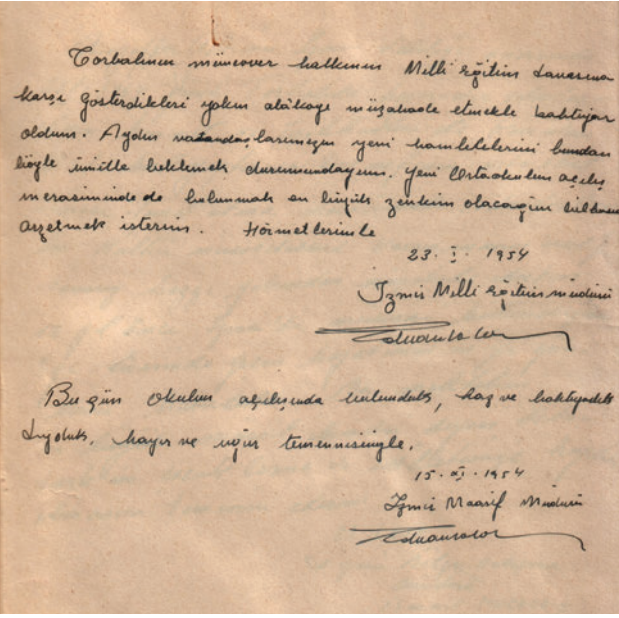 Torbalının münevver halkının Milli Eğitim davasına
karşı gösterdikleri yakın alâkayı müşahade etmekle bahtiyar
oldum. Aydın vatandaşlarımızın yeni hamlelelerini bundan
böyle ümitle beklemek durumundayım. Yeni Ortaokulun açılış
merasiminde de bulunmak en büyük zevkim olacağını
arzetmek isterim. Hörmetlerimle
23. I. 1954
İzmir Milli Eğitim müdürü
Bu gün okulun açılışında bulunduk, haz ve bahtiyarlık
duyduk. hayır ve uğur temennisiyle.
15. XI. 1954
İzmir Maarif Müdürü